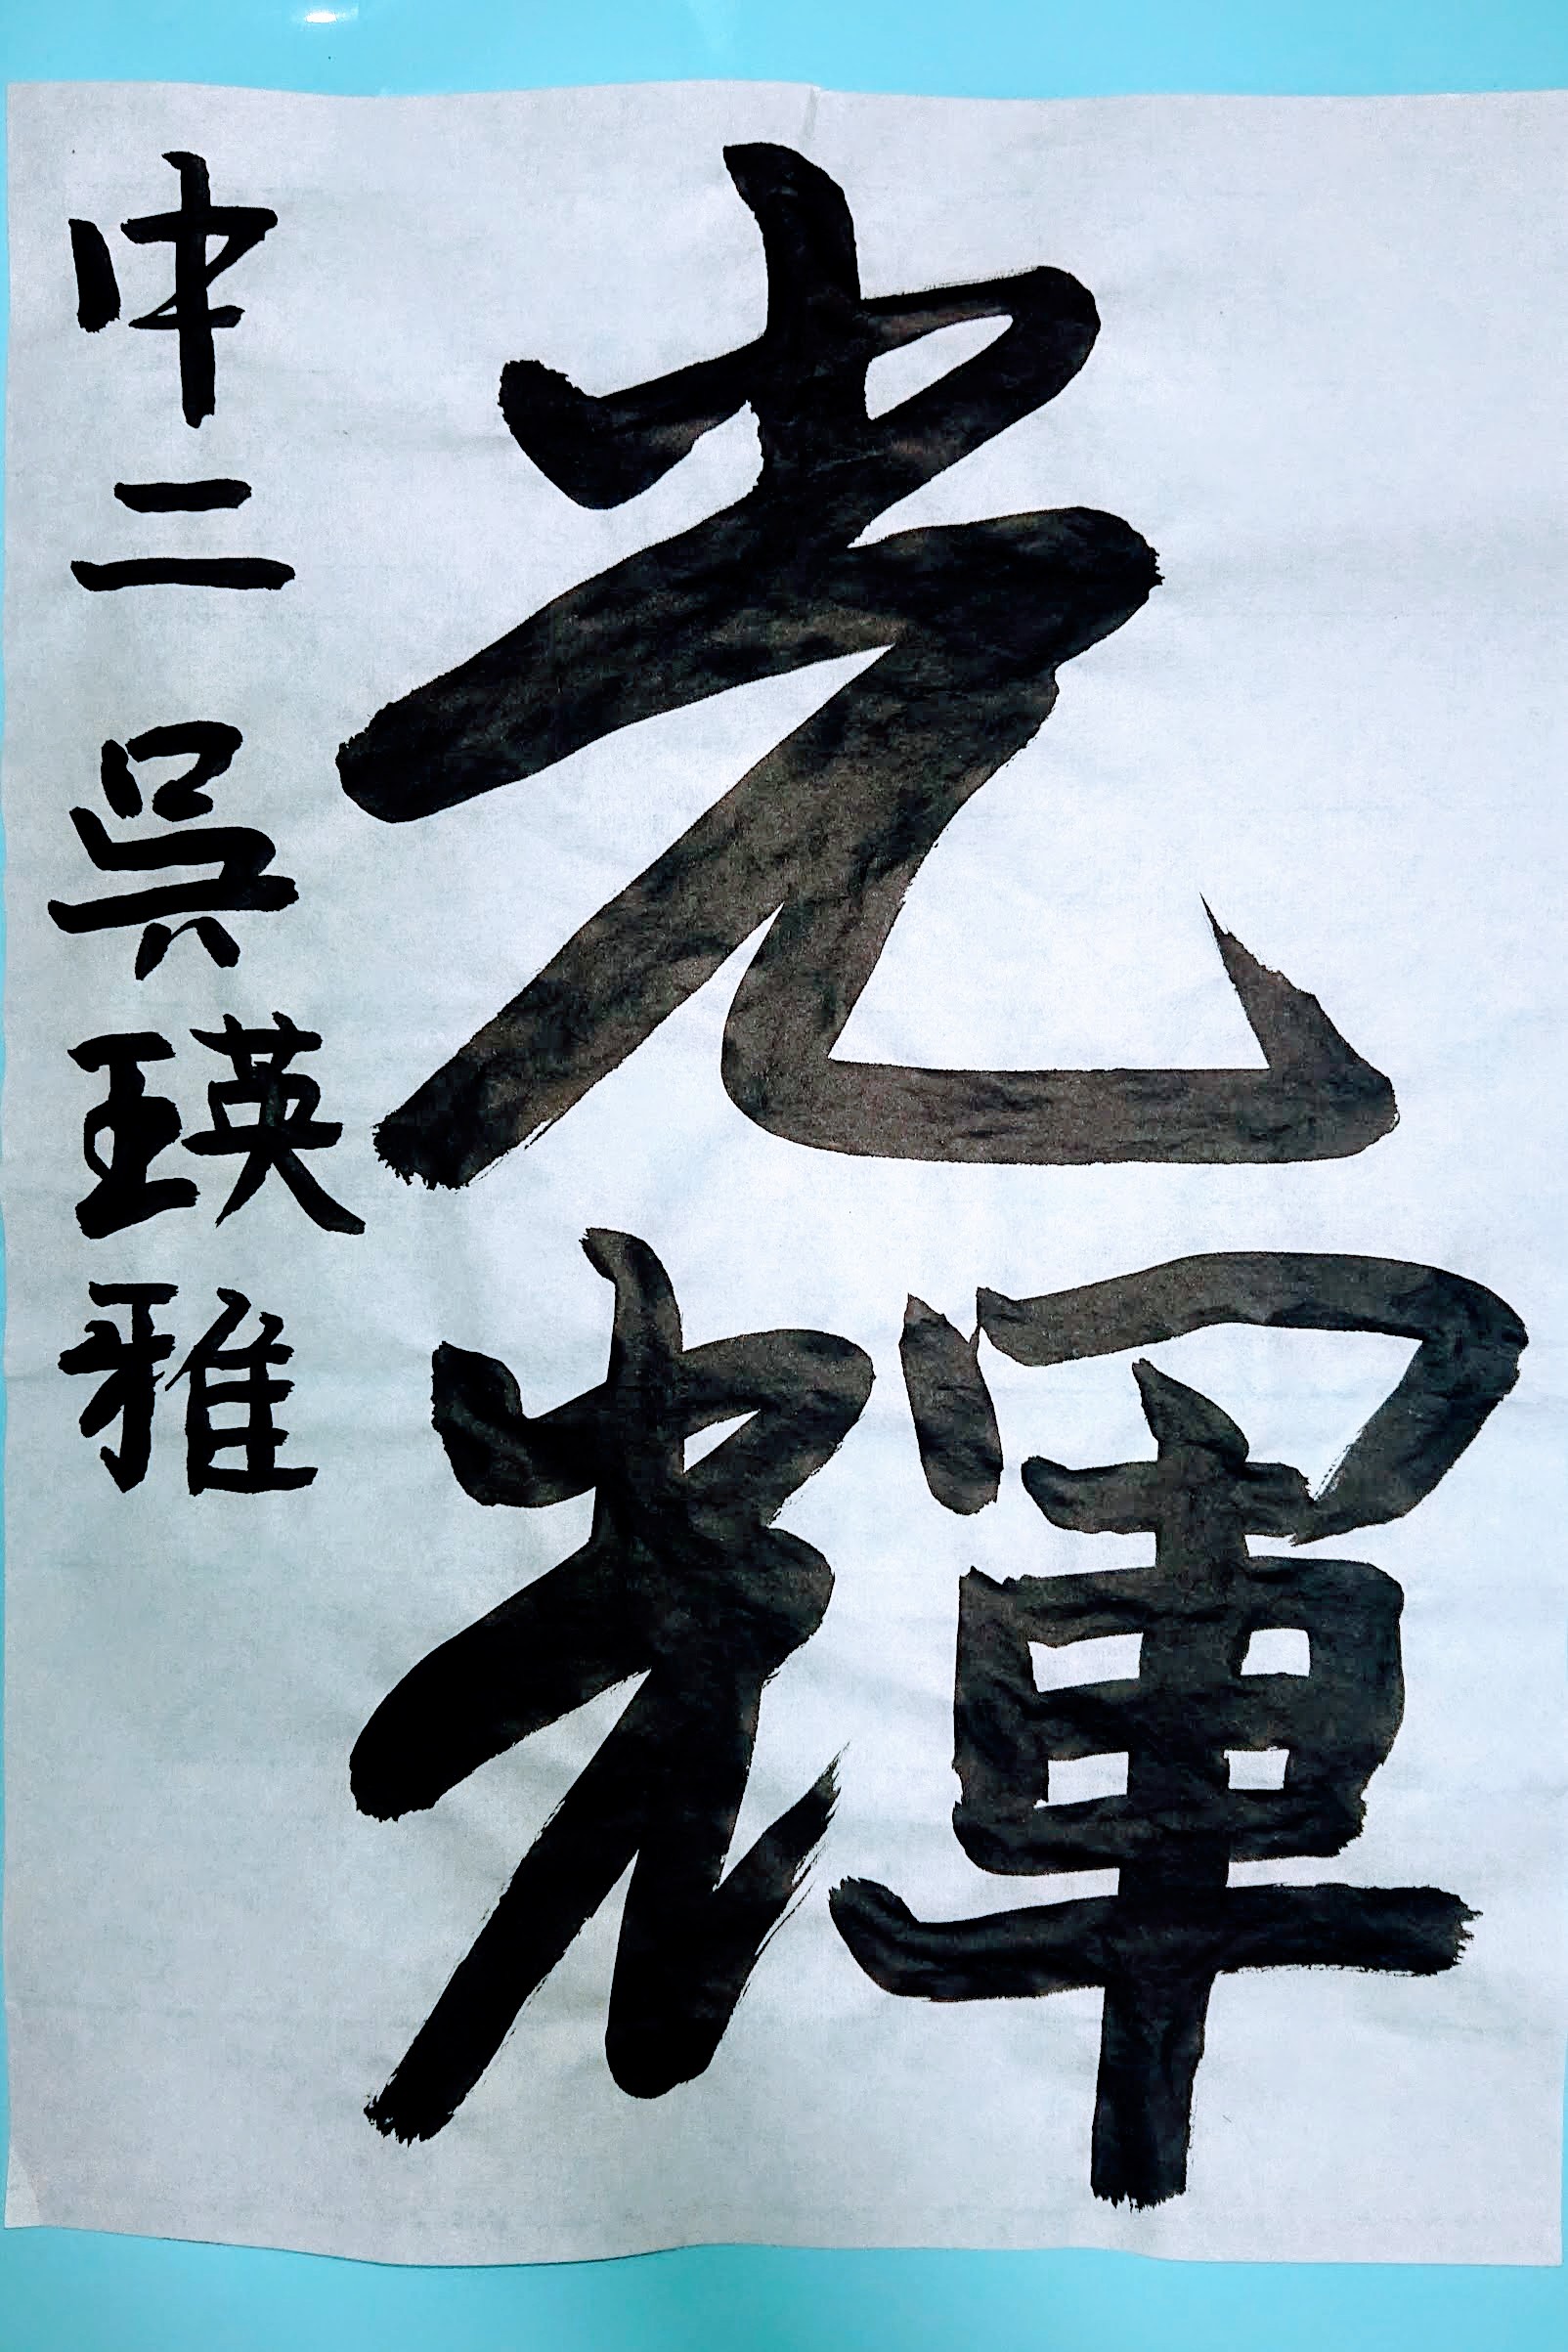 光輝
中二 吳瑛雅